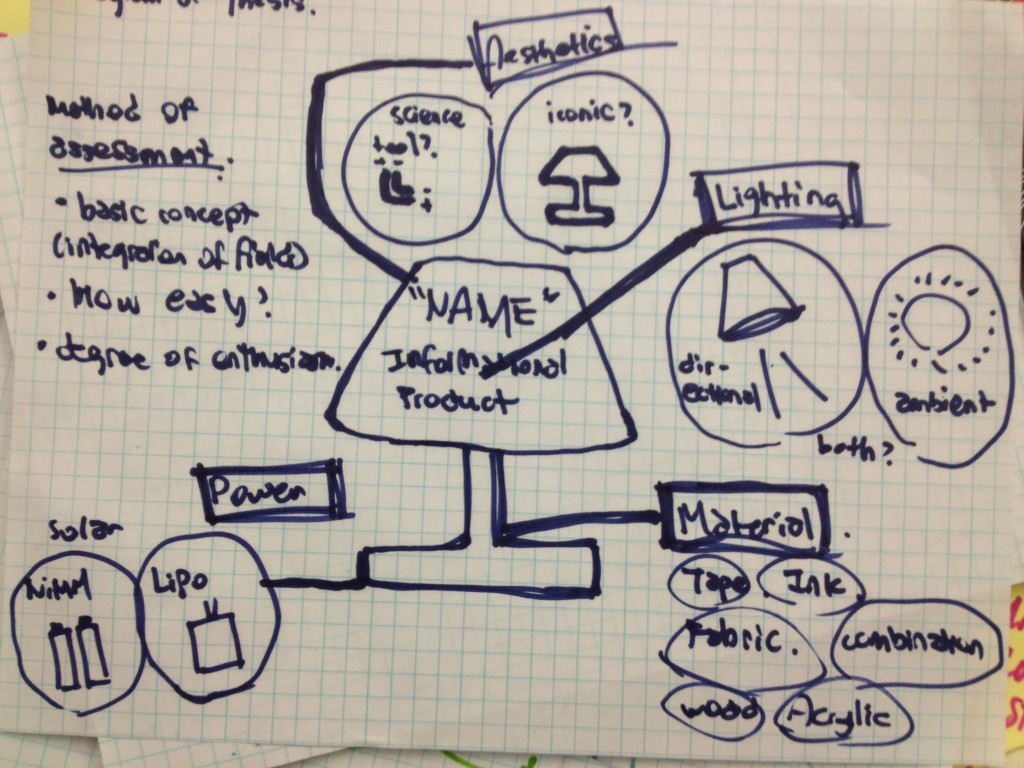 of thesis.
Aesthetics
science
tool?
iconic?
Method of
assessment.
• basic concept
(integration of fields)
• How easy?
• degree of enthusiasm.
Lighting
directional
dir-
ectional
ambient
both?
"NAME"
Informational
Product
Power
Solar
NiMH
LiPo
Material.
Tape
Ink
Fabric.
combination
wood
Acrylic